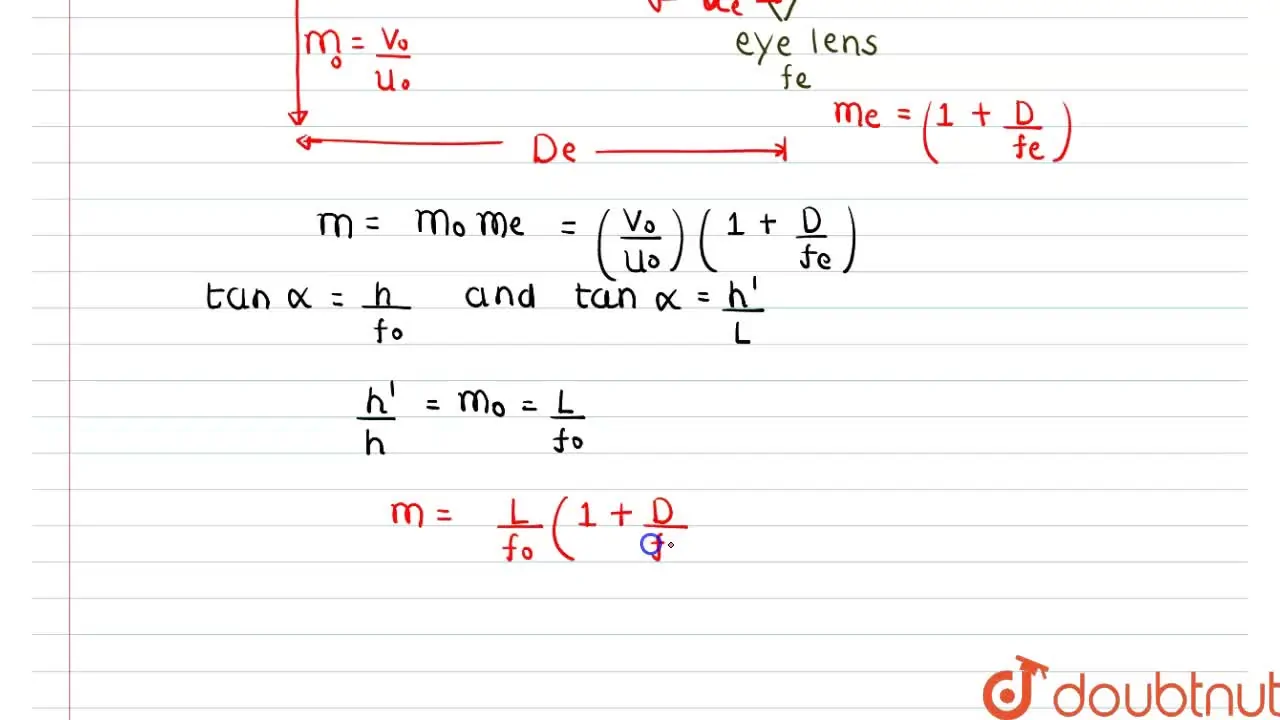 ue
m₀ = v₀/u₀
eye lens
fe
me = (1 + D/fe)
De
m = m₀ me = (v₀/u₀)(1 + D/fe)
tan α = h/f₀ and tan α = h'/L
h'/h = m₀ = L/f₀
m = L/f₀ (1 + D/f
doubtnut